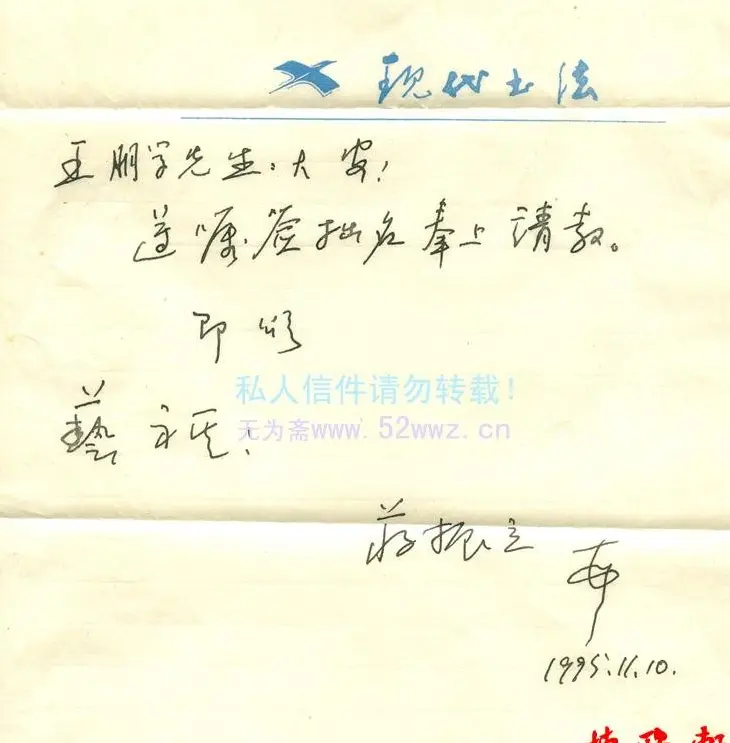 现代书法
王朋学先生:大安!
遵嘱签拙名奉上请教。
即颂
私人信件请勿转载!
藝祺!
无为斋www.52wwz.cn
蒋振立
1995.11.10.